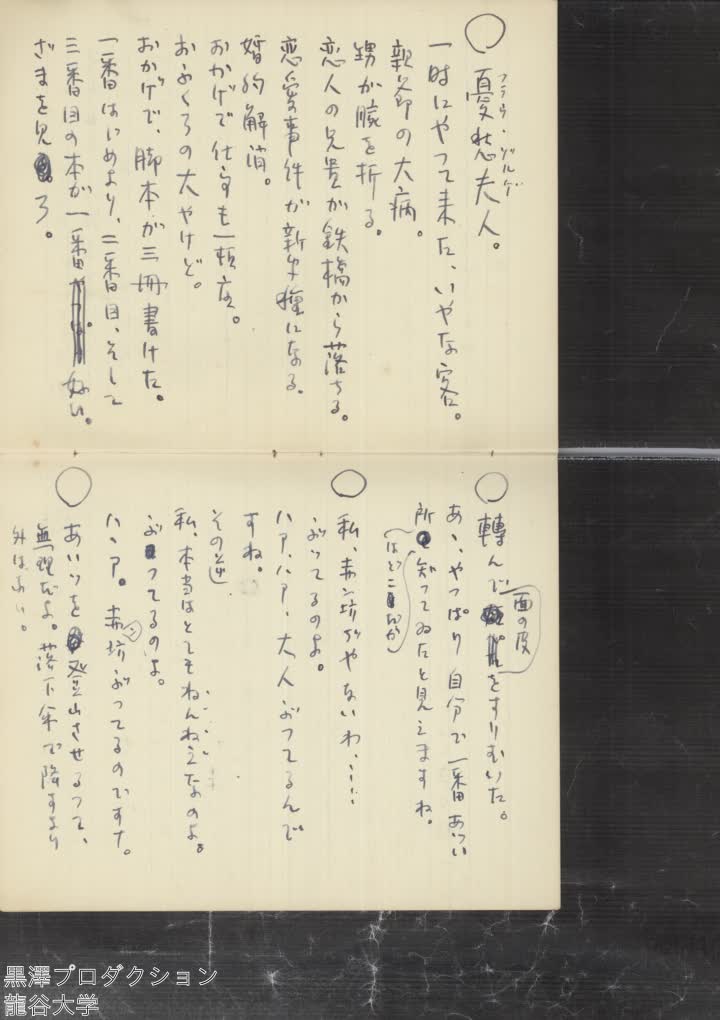 ○憂愁夫人。
フラウ・ゾルゲ
一時にやって来た、いやな客。
親爺の大病。
甥が腕を折る。
恋人の兄貴が鉄橋から落ちる。
恋愛事件が新聞種になる。
婚約解消。
おかげで仕事も一頓座。
おふくろの大やけど。
おかげで、脚本が三冊書けた。
一番はじめより、二番目、そして
三番目の本が一番好い。
ざまを見ろ。
○轉んで面の皮をすりむいた。
あゝ、やっぱり自分で一番あつい
所知ってゐたと見えますね。
○私、赤ン坊ぢやないわ、……
ぶってるのよ。
ハア、ハア、大人ぶってるんで
すね。
その逆
私、本当はとてもねんねえなのよ。
ぶってるのよ。
ハハア。赤ン坊ぶってるのですナ。
○あいつを登山させるって、
無理だよ。落下傘で降すより
外はない。
黒澤プロダクション
龍谷大学